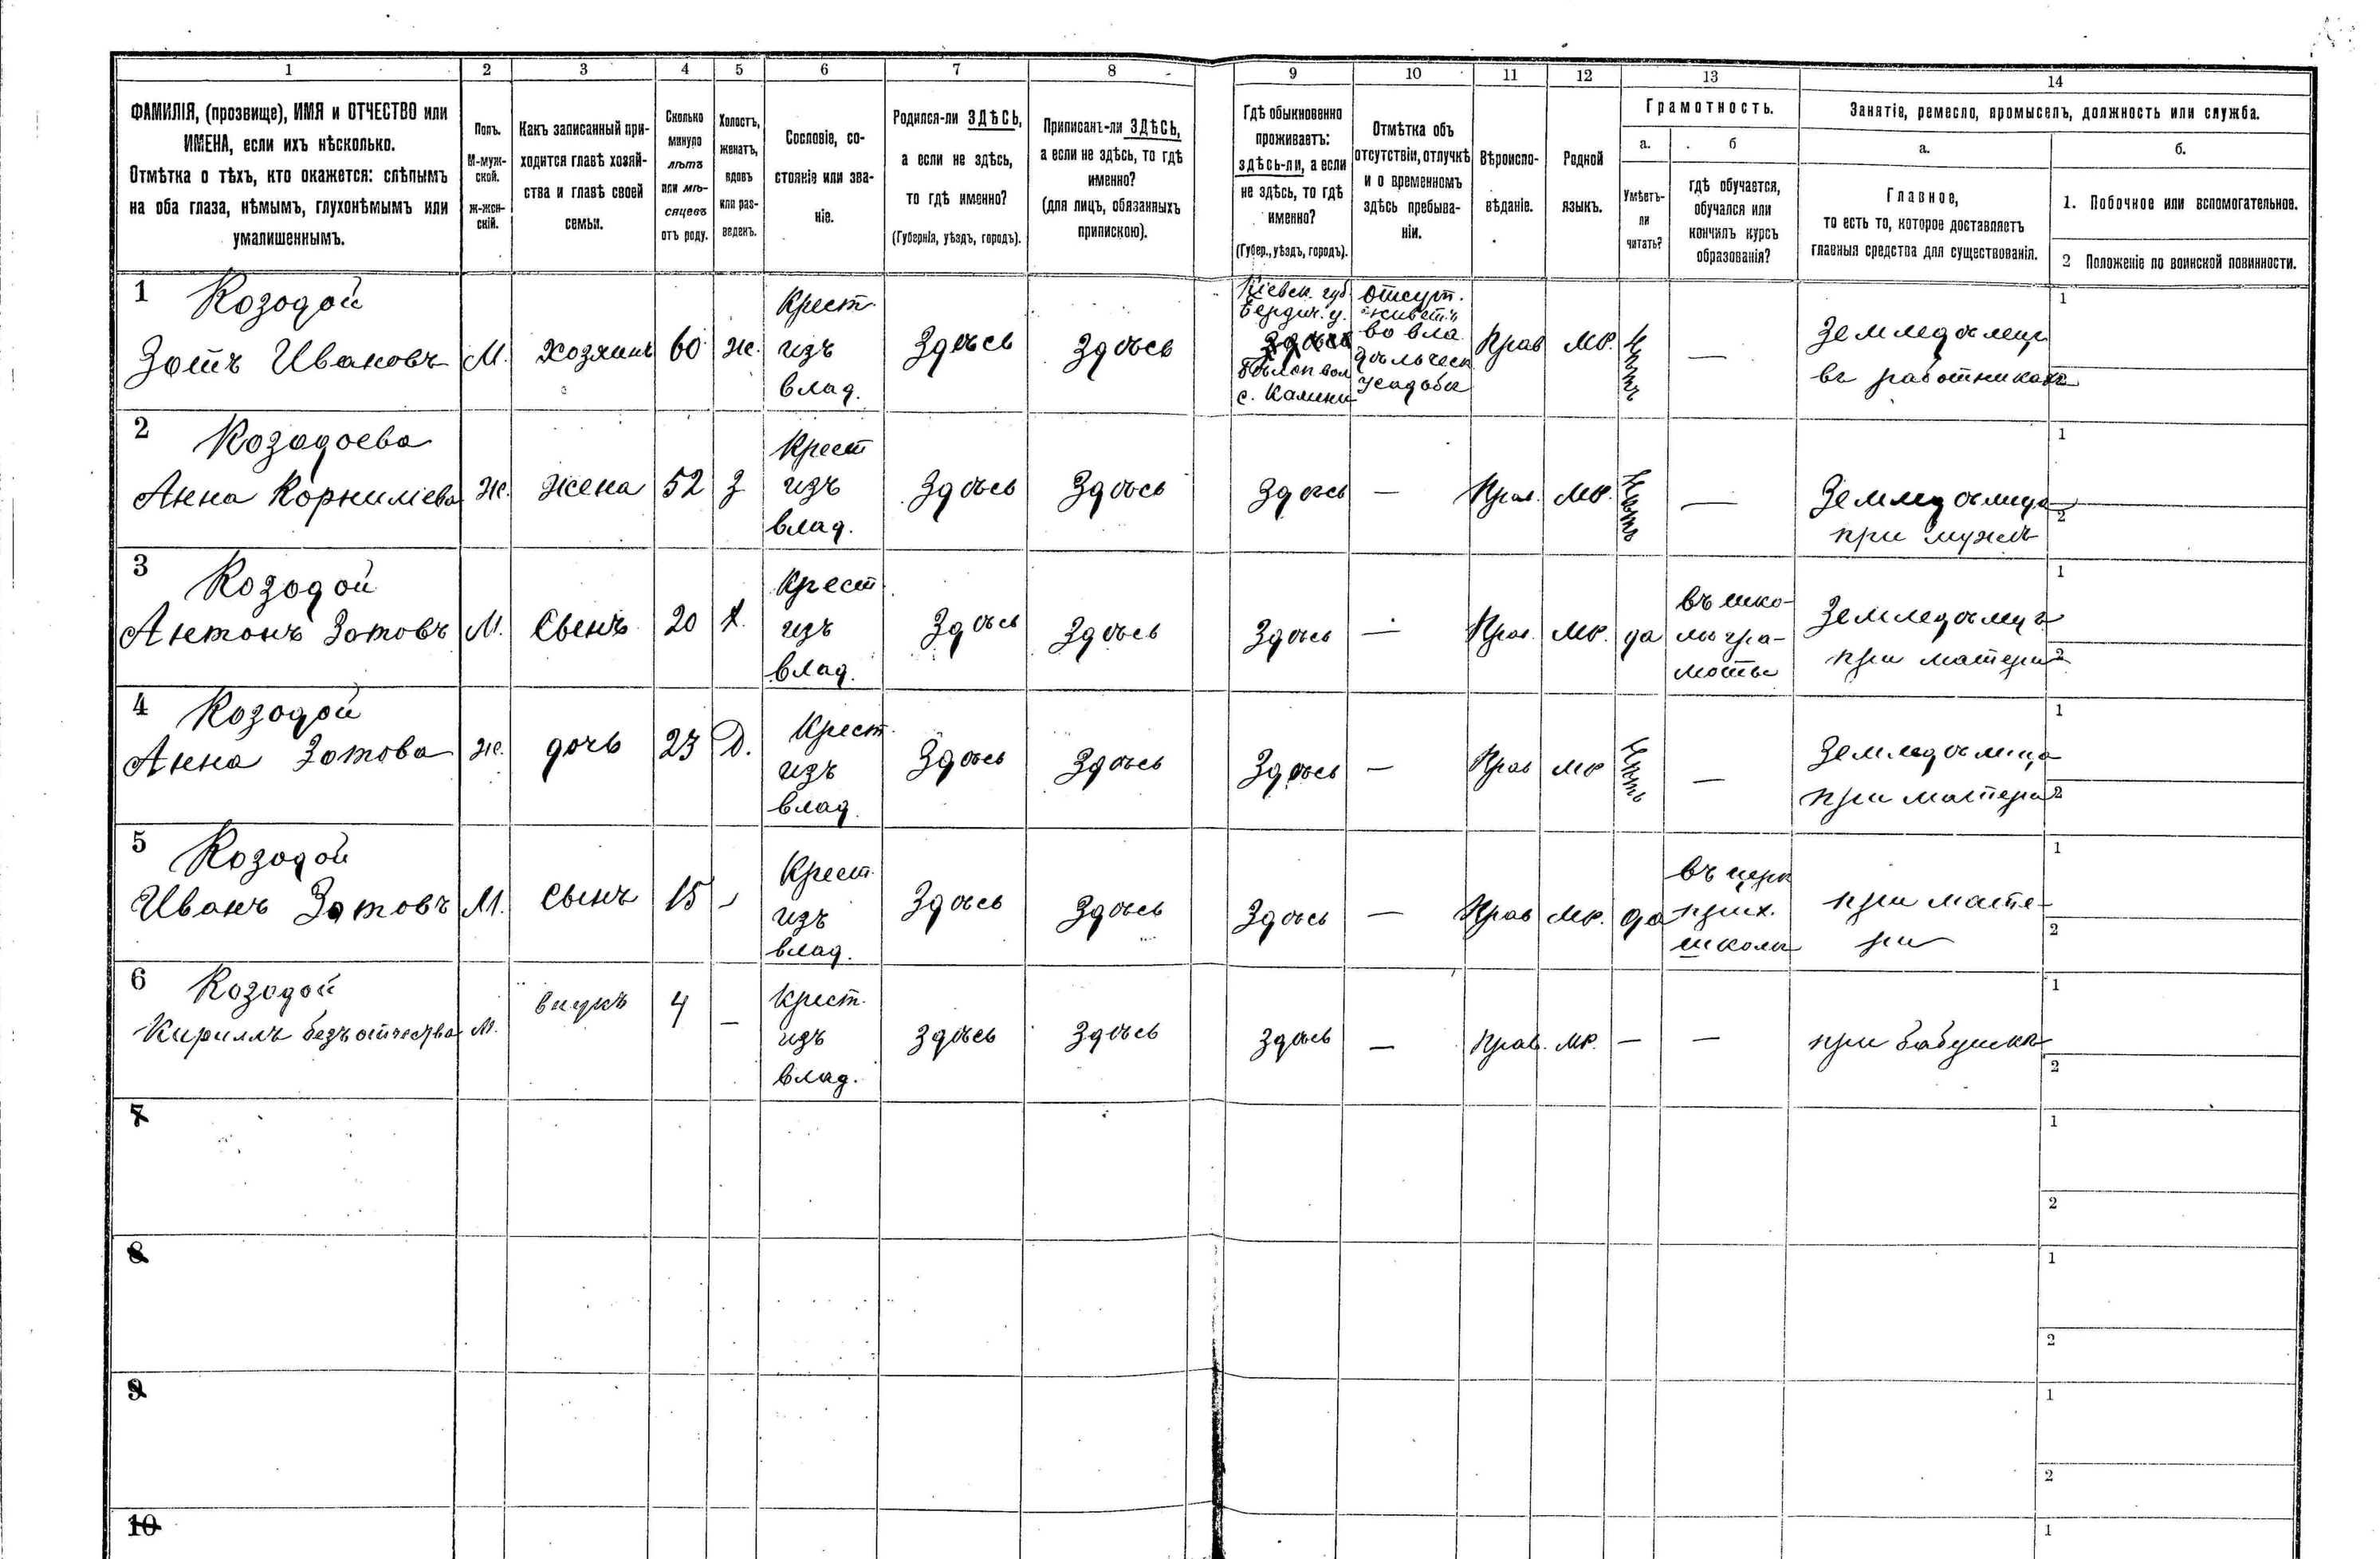 1 2 3 4 5 6 7 8 9 10 11 12 13 14
ФАМИЛІЯ, (прозвище), ИМЯ и ОТЧЕСТВО или
ИМЕНА, если ихъ нѣсколько.
Отмѣтка о тѣхъ, кто окажется: слѣпымъ
на оба глаза, нѣмымъ, глухонѣмымъ или
умалишеннымъ.
Полъ.
М-муж-
ской.
Ж-жен-
скій.
Какъ записанный при-
ходится главѣ хозяй-
ства и главѣ своей
семьи.
Сколько
минуло
лѣтъ
или мѣ-
сяцевъ
отъ роду.
Холостъ,
женатъ,
вдовъ
или раз-
веденъ.
Сословіе, со-
стояніе или зва-
ніе.
Родился-ли ЗДѢСЬ,
а если не здѣсь,
то гдѣ именно?
(Губернія, уѣздъ, городъ).
Приписанъ-ли ЗДѢСЬ,
а если не здѣсь, то гдѣ
именно?
(для лицъ, обязанныхъ
припискою).
Гдѣ обыкновенно
проживаетъ:
здѣсь-ли, а если
не здѣсь, то гдѣ
именно?
(Губер., уѣздъ, городъ).
Отмѣтка объ
отсутствіи, отлучкѣ
и о временномъ
здѣсь пребыва-
ніи.
Вѣроиспо-
вѣданіе.
Родной
языкъ.
Грамотность.
а.
Умѣетъ-
ли
читать?
б
гдѣ обучается,
обучался или
кончилъ курсъ
образованія?
Занятіе, ремесло, промыселъ, должность или служба.
а.
Главное,
то есть то, которое доставляетъ
главныя средства для существованія.
б.
1. Побочное или вспомогательное.
2 Положеніе по воинской повинности.
1 Козодой
Зотъ Ивановъ
М.
Хозяинъ
60
ж.
Крест.
изъ
влад.
Здѣсь
Здѣсь
Кіевск. губ
Бердич. у.
Здѣсь
с. Калини
Отсут.
живетъ
во вла
дѣльческ
усадьбѣ
Прав
МР.
Нѣтъ
—
Земледѣлец
въ работникахъ
1
2
2 Козодоева
Анна Корниліева
Ж.
Жена
52
З
Крест
изъ
влад.
Здѣсь
Здѣсь
Здѣсь
—
Прав.
МР.
Нѣтъ
—
Земледѣлица
при мужѣ
1
2
3 Козодой
Антонъ Зотовъ
М.
Сынъ
20
Х.
Крест
изъ
влад.
Здѣсь
Здѣсь
Здѣсь
—
Прав.
МР.
да
въ шко-
лѣ гра-
моты
Земледѣлец
при матери
1
2
4 Козодой
Анна Зотова
Ж.
дочь
23
Д.
Крест.
изъ
влад.
Здѣсь
Здѣсь
Здѣсь
—
Прав
МР
Нѣтъ
—
Земледѣлица
при матери
1
2
5 Козодой
Иванъ Зотовъ
М.
Сынъ
15
-
Крест.
изъ
влад.
Здѣсь
Здѣсь
Здѣсь
—
Прав
МР.
да
въ церк
прих.
школѣ
при мате-
ри
1
2
6 Козодой
Кириллъ безъ отчества
М.
внукъ
4
—
Крест.
изъ
влад.
Здѣсь
Здѣсь
Здѣсь
—
Прав.
МР.
—
—
при бабушкѣ
1
2
7
1
2
8
1
2
9
1
2
10
1